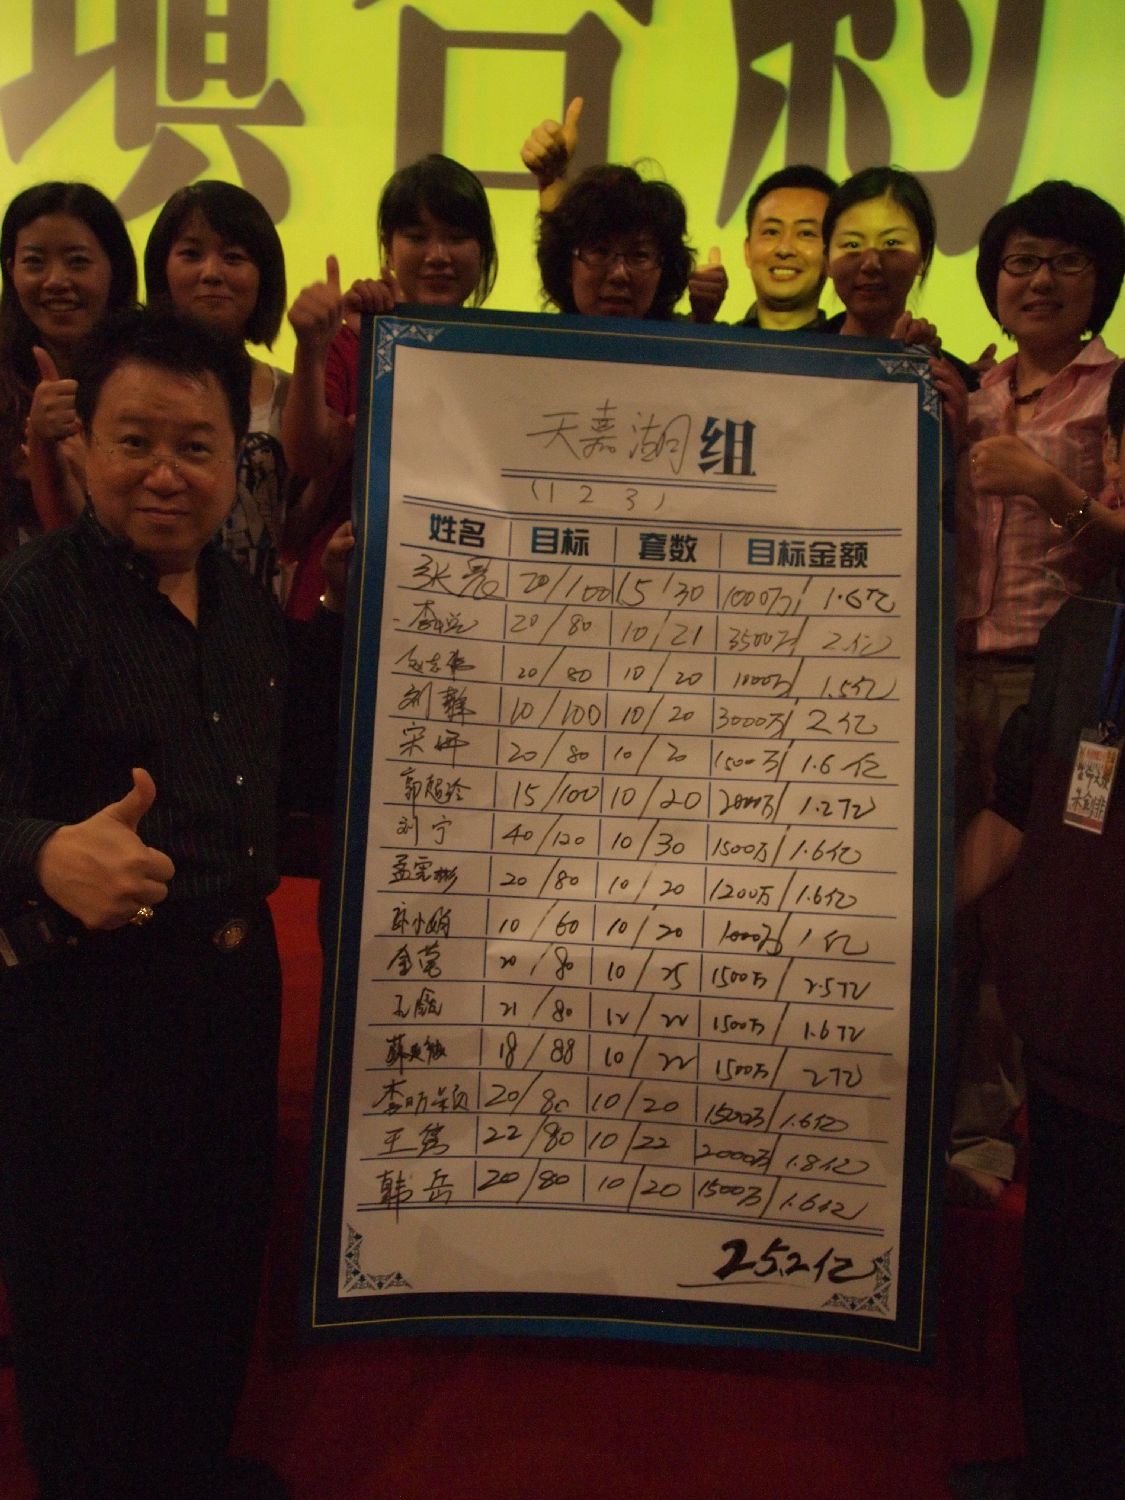 天嘉湖组
(1 2 3)
姓名 目标 套数 目标金额
张亮 20/100 15/30 1000万/1.6亿
20/80 10/21 3500万/2亿
20/80 10/20 1000万/1.5亿
刘静 10/100 10/20 3000万/2亿
宋娜 20/80 10/20 1500万/1.6亿
郭超玲 15/100 10/20 2000万/1.2亿
刘宁 40/120 10/30 1500万/1.6亿
孟宪彬 20/80 10/20 1200万/1.6亿
小娟 10/60 10/20 1000万/1亿
金莺 20/80 10/25 1500万/2.5亿
王 21/80 12/22 1500万/1.6亿
18/88 10/22 1500万/2亿
李昕颖 20/80 10/20 1500万/1.6亿
王隽 22/80 10/22 2000万/1.8亿
韩岳 20/80 10/20 1500万/1.6亿
25.2亿